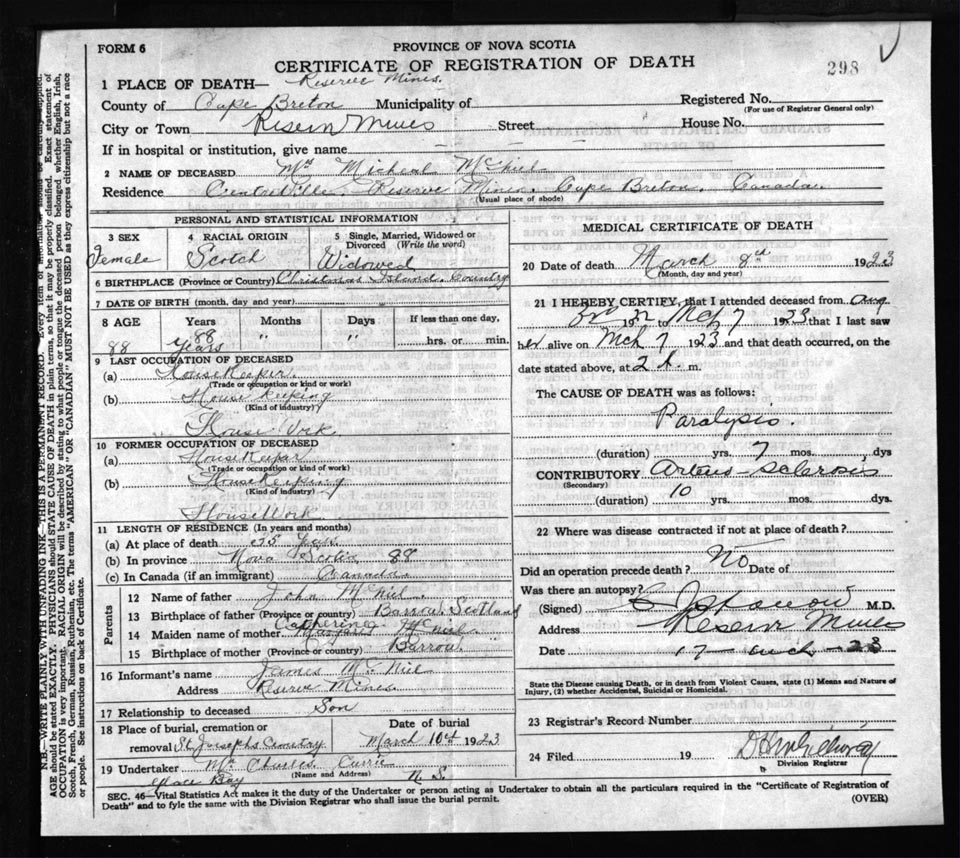 FORM 6
PROVINCE OF NOVA SCOTIA
CERTIFICATE OF REGISTRATION OF DEATH
298
1 PLACE OF DEATH— Reserve Mines.
County of Cape Breton Municipality of
Registered No.
(For use of Registrar General only)
City or Town Reserve Mines Street House No.
If in hospital or institution, give name
2 NAME OF DECEASED Mrs Micheal McNeil
Residence Centreville Reserve Mines. Cape Breton. Canada.
(Usual place of abode)
PERSONAL AND STATISTICAL INFORMATION
3 SEX
Female
4 RACIAL ORIGIN
Scotch
5 Single, Married, Widowed or Divorced (Write the word)
Widowed
6 BIRTHPLACE (Province or Country) Christmas Island. Country
7 DATE OF BIRTH (month, day and year)
8 AGE Years Months Days If less than one day,
88 88 years " " hrs. or min.
9 LAST OCCUPATION OF DECEASED
(a) HouseKeeper.
(Trade or occupation or kind or work)
(b) House Keeping
(Kind of industry)
House Work
10 FORMER OCCUPATION OF DECEASED
(a) HouseKeeper
(Trade or occupation or kind of work)
(b) HouseKeeping
(Kind of industry)
HouseWork
11 LENGTH OF RESIDENCE (In years and months)
(a) At place of death years
(b) In province Nova Scotia 88
(c) In Canada (if an immigrant) Canada.
Parents
12 Name of father John McNeil.
13 Birthplace of father (Province or country) Barrow. Scotland
14 Maiden name of mother Catherine McNeil
15 Birthplace of mother (Province or country) Barrow.
16 Informant's name James McNeil
Address Reserve Mines.
17 Relationship to deceased Son
18 Place of burial, cremation or removal St Josephs Cemetry
Date of burial
March 10th 1923
19 Undertaker Mr Charles Currie
(Name and Address)
Glace Bay N S.
MEDICAL CERTIFICATE OF DEATH
20 Date of death March 8th 1923
(Month, day and year)
21 I HEREBY CERTIFY, that I attended deceased from Aug
1922 to Mch 7 1923 that I last saw
her alive on Mch 7 1923 and that death occurred, on the
date stated above, at 2 m.
The CAUSE OF DEATH was as follows:
Paralysis.
(duration) yrs. 7 mos. dys
CONTRIBUTORY Arterio-Sclerosis
(Secondary)
(duration) 10 yrs. mos. dys.
22 Where was disease contracted if not at place of death?
Did an operation precede death? No Date of
Was there an autopsy?
(Signed) M.D.
Address Reserve Mines
Date 17 Mch 23
State the Disease causing Death, or in death from Violent Causes, state (1) Means and Nature of Injury, (2) whether Accidental, Suicidal or Homicidal.
23 Registrar's Record Number
24 Filed 19
Division Registrar
SEC. 46—Vital Statistics Act makes it the duty of the Undertaker or person acting as Undertaker to obtain all the particulars required in the "Certificate of Registration of
Death" and to fyle the same with the Division Registrar who shall issue the burial permit.
(OVER)
N.B.—WRITE PLAINLY WITH UNFADING INK—THIS IS A PERMANENT RECORD. Every item of information should be carefully supplied.
AGE should be stated EXACTLY. PHYSICIANS should STATE CAUSE OF DEATH in plain terms, so that it may be properly classified. Exact statement of
OCCUPATION is very important. RACIAL ORIGIN will be described by stating to what people or tongue the deceased person belonged, whether English, Irish,
Scotch, French, German, Russian, Ruthenian, etc. The terms "AMERICAN" OR "CANADIAN" MUST NOT BE USED as they express citizenship but not a race
or people. See instructions on back of Certificate.